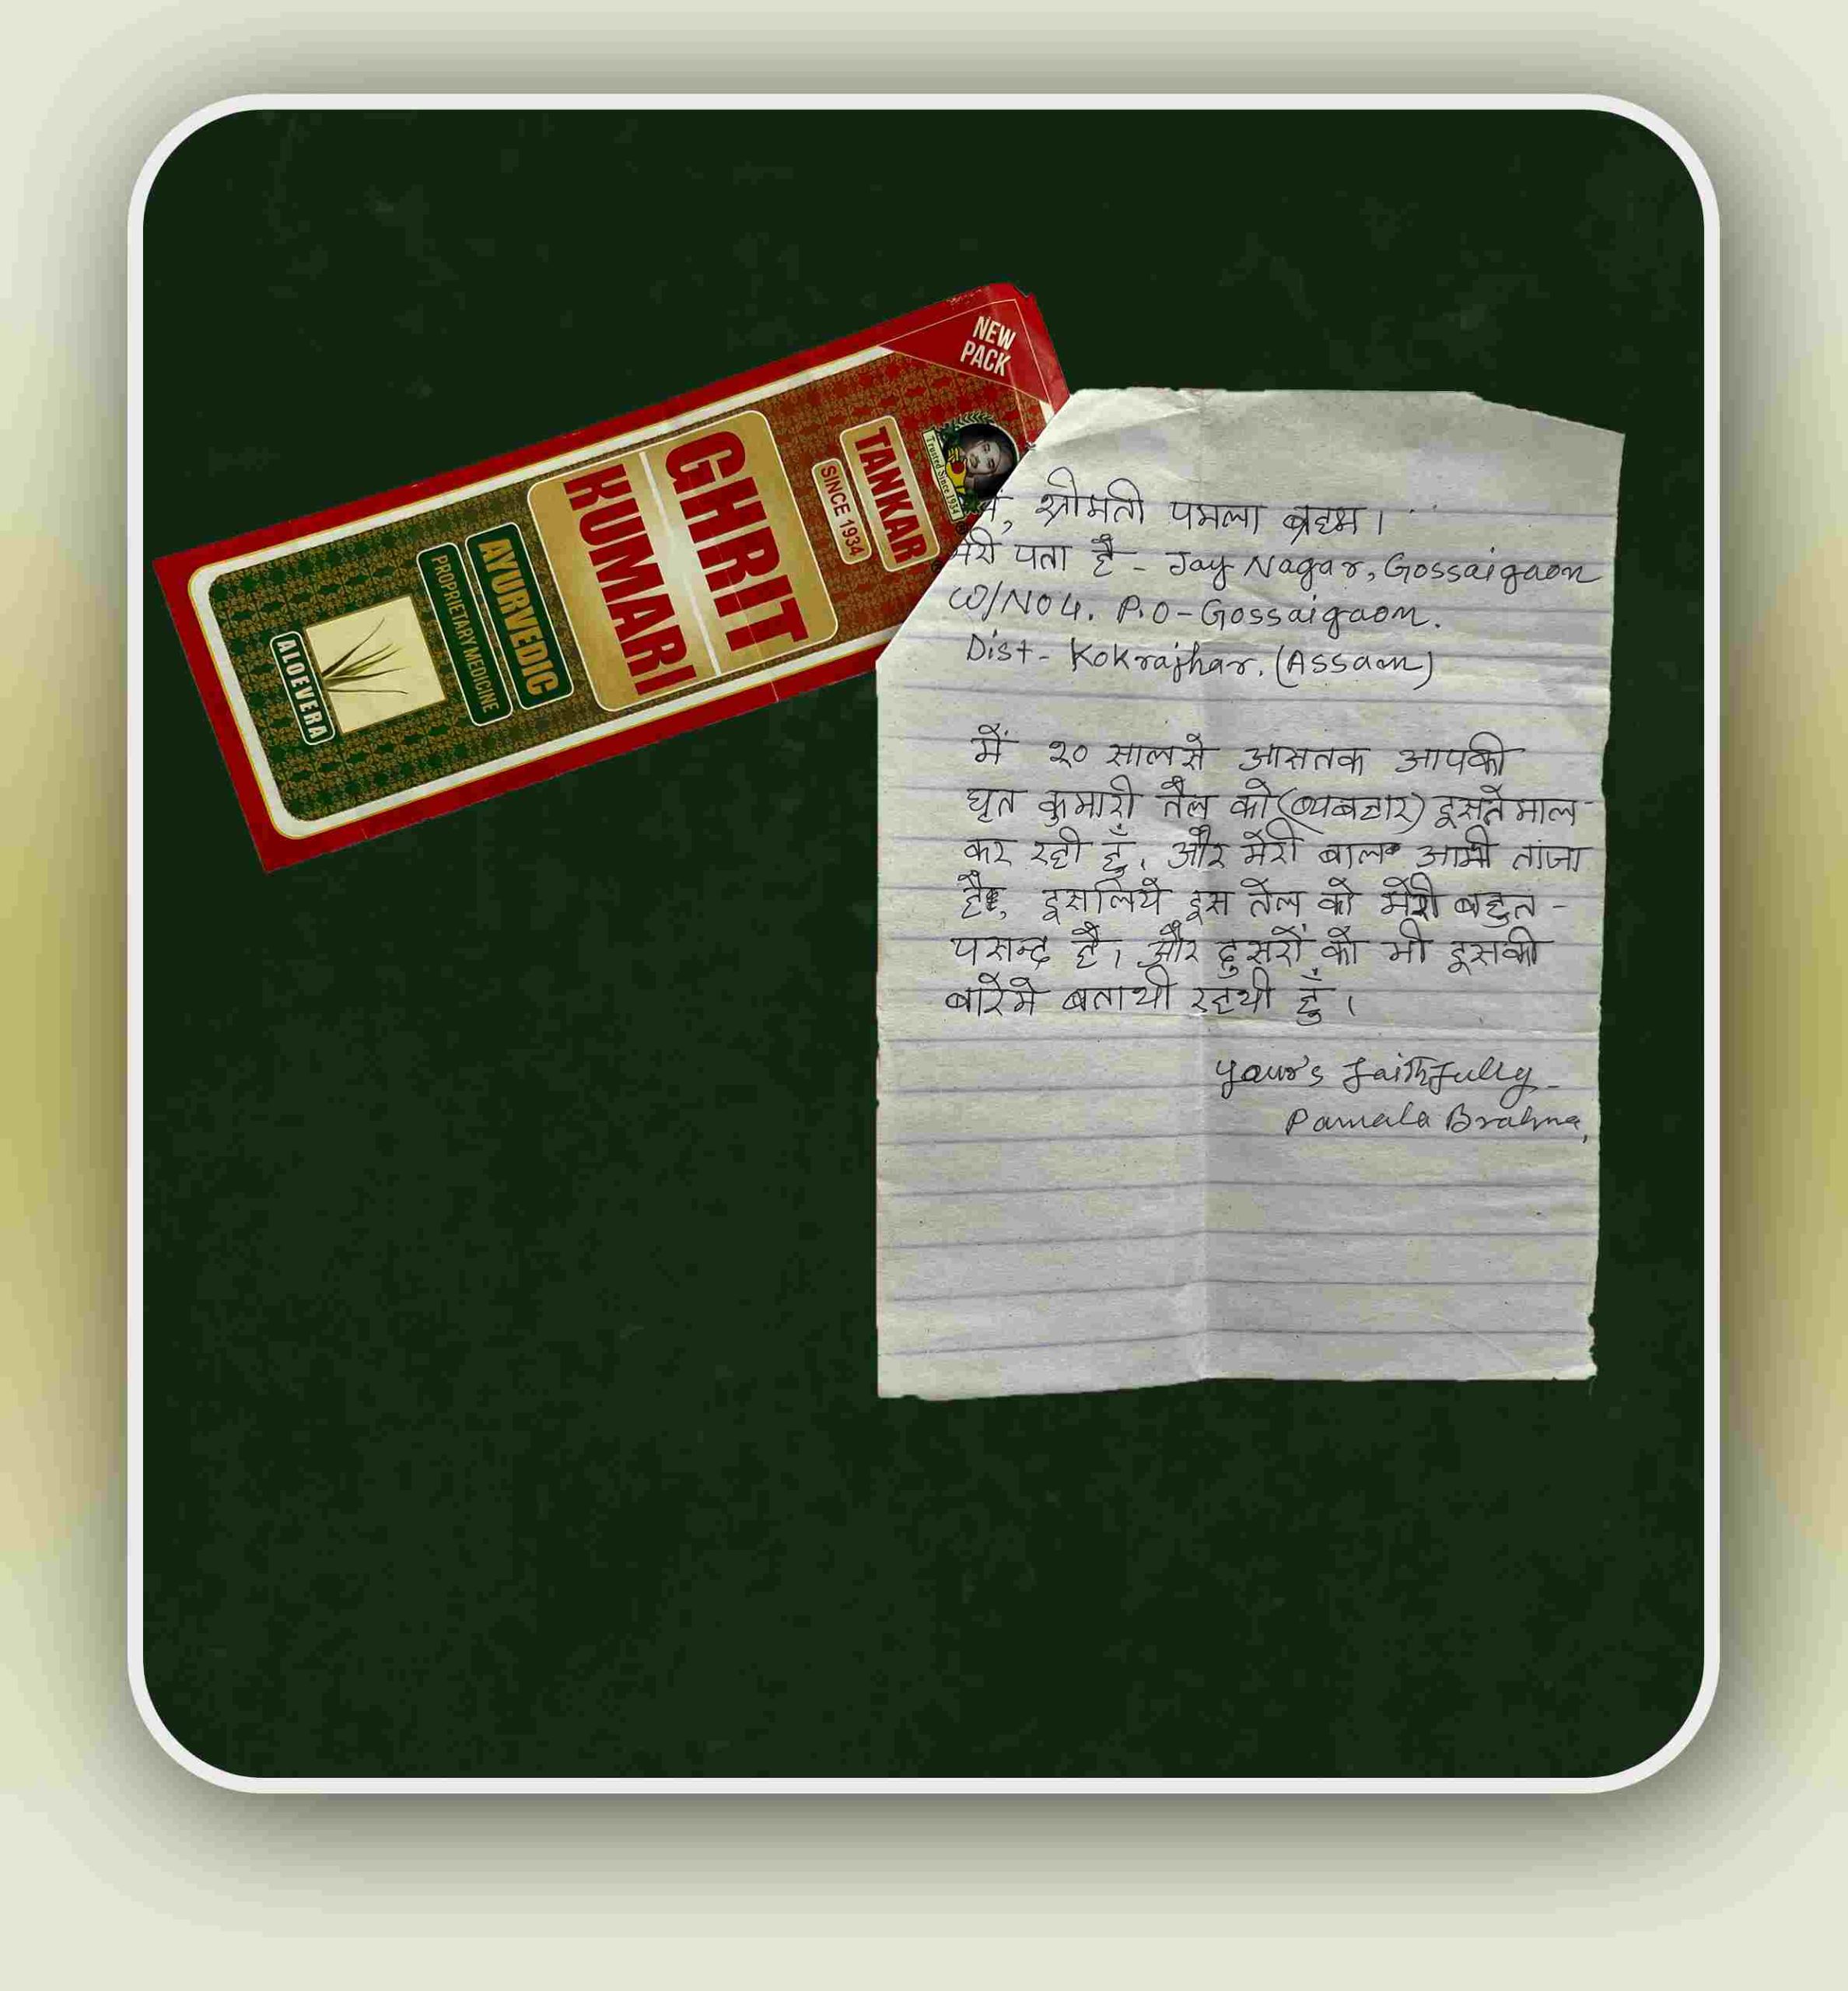 NEW
PACK
Trusted Since 1934
TANKAR
SINCE 1934
GHRIT
KUMARI
AYURVEDIC
PROPRIETARY MEDICINE
ALOEVERA
श्रीमती पमला ब्रह्म।
मेरी पता है - Jay Nagar, Gossaigaon
W/NO 4. P.O - Gossaigaon.
Dist - Kokrajhar. (Assam)
मैं २० साल से आसतक आपकी
घृत कुमारी तैल को (ब्यबहार) इसतेमाल -
कर रही हुँ, और मेरी बाल आमी तांजा
है, इसलिये इस तेल को मेरी बहुत -
पसन्द है, और दुसरों को भी इसकी
बारेमे बतायी रहयी हुँ।
your's faithfully -
Pamala Brahma,